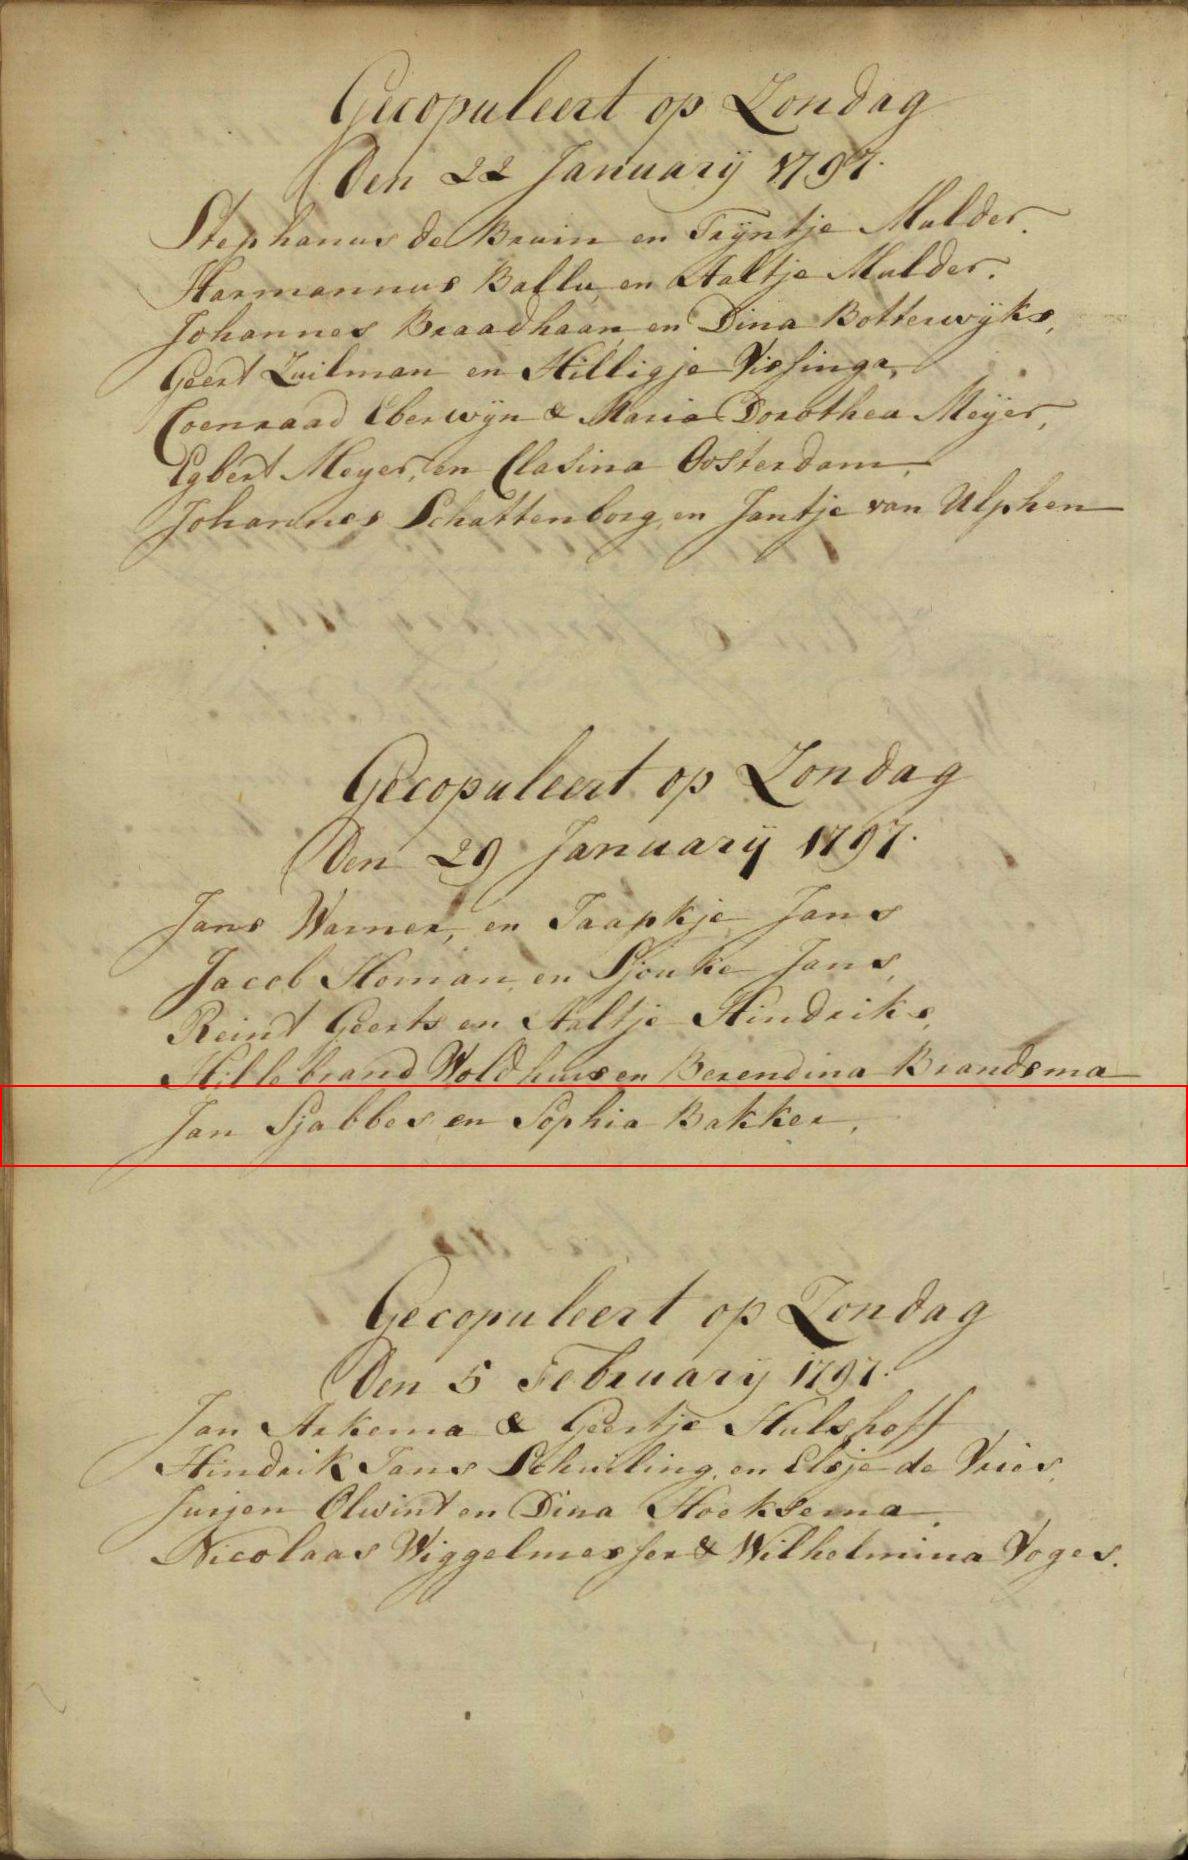 Gecopuleert op Zondag
Den 22 January 1797.
Stephanus de Bruin en Trÿntje Mulder.
Harmannus Ballu, en Aaltje Mulder.
Johannes Braadhaan, en Dina Botterwÿks,
Geert Zuilman en Hilligje Vissinga,
Coenraad Eberwÿn & Maria Dorothea Meÿer,
Egbert Meyer, en Clasina Oosterdam,
Johannes Schattenborg, en Jantje van Ulphen
Gecopuleert op Zondag
Den 29 January 1797.
Jans Warner, en Taapkje Jans
Jacob Homan, en Sjouke Jans,
Reint Geerts en Aaltje Hindriks,
Hillebrand Woldhuis en Berendina Brandsma
Jan Sjabbes en Sophia Bakker,
Gecopuleert op Zondag
Den 5 February 1797.
Jan Arkema & Geertje Hulshoff
Hindrik Jans Schuiling, en Elsje de Vries,
Jurjen Olwint en Dina Hoeksema,
Nicolaas Wiggelmesser & Wilhelmina Voges.